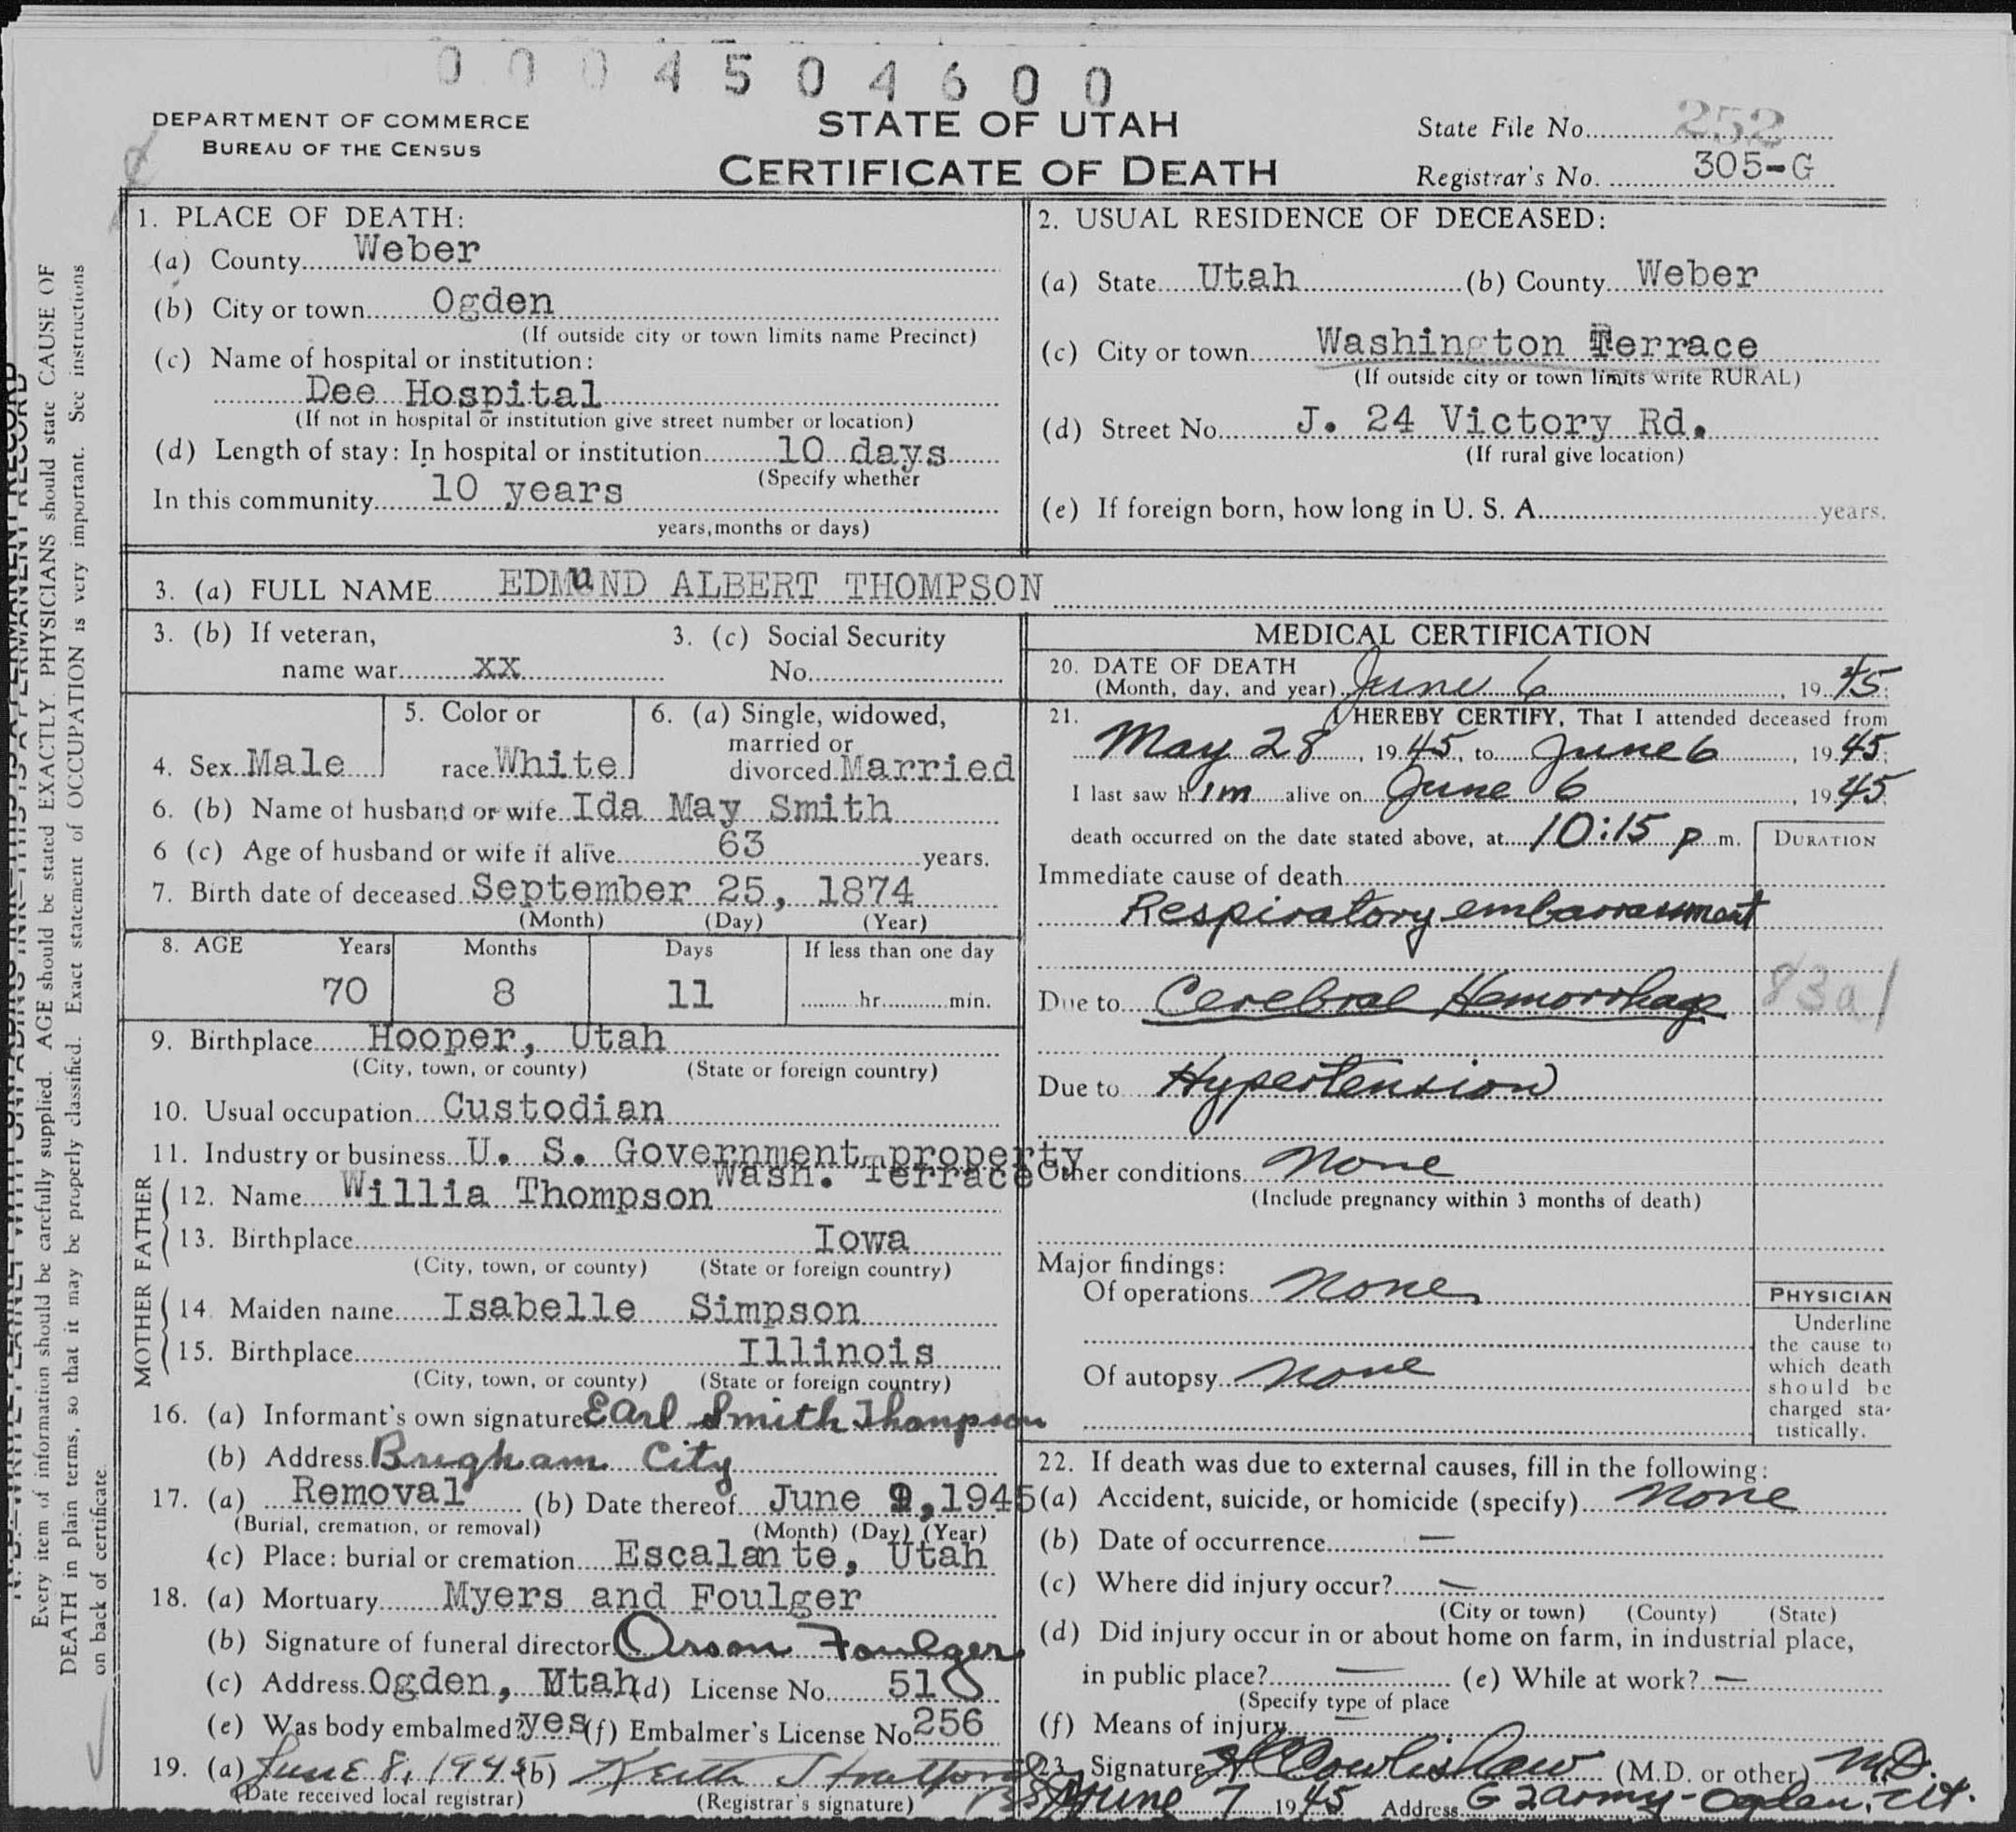 0 0 0 4 5 0 4 6 0 0
DEPARTMENT OF COMMERCE
BUREAU OF THE CENSUS
STATE OF UTAH
CERTIFICATE OF DEATH
State File No. 252
Registrar's No. 305-G
1. PLACE OF DEATH:
(a) County Weber
(b) City or town Ogden
(If outside city or town limits name Precinct)
(c) Name of hospital or institution:
Dee Hospital
(If not in hospital or institution give street number or location)
(d) Length of stay: In hospital or institution 10 days
(Specify whether
In this community 10 years
years, months or days)
2. USUAL RESIDENCE OF DECEASED:
(a) State Utah (b) County Weber
(c) City or town Washington Terrace
(If outside city or town limits write RURAL)
(d) Street No. J. 24 Victory Rd.
(If rural give location)
(e) If foreign born, how long in U. S. A. years.
3. (a) FULL NAME EDMUND ALBERT THOMPSON
3. (b) If veteran,
name war xx
3. (c) Social Security
No.
4. Sex Male
5. Color or
race White
6. (a) Single, widowed,
married or
divorced Married
6. (b) Name of husband or wife Ida May Smith
6 (c) Age of husband or wife if alive 63 years.
7. Birth date of deceased September 25, 1874
(Month) (Day) (Year)
8. AGE Years Months Days If less than one day
70 8 11 hr. min.
9. Birthplace Hooper, Utah
(City, town, or county) (State or foreign country)
10. Usual occupation Custodian
11. Industry or business U. S. Government property
Wash. Terrace
FATHER
12. Name Willia Thompson
13. Birthplace Iowa
(City, town, or county) (State or foreign country)
MOTHER
14. Maiden name Isabelle Simpson
15. Birthplace Illinois
(City, town, or county) (State or foreign country)
16. (a) Informant's own signature Earl Smith Thompson
(b) Address Brigham City
17. (a) Removal (b) Date thereof June 9, 1945
(Burial, cremation, or removal) (Month) (Day) (Year)
(c) Place: burial or cremation Escalante, Utah
18. (a) Mortuary Myers and Foulger
(b) Signature of funeral director Orson Foulger
(c) Address Ogden, Utah (d) License No. 51
(e) Was body embalmed? yes (f) Embalmer's License No. 256
19. (a) June 8, 1945 (b) Keith Stratford
(Date received local registrar) (Registrar's signature)
MEDICAL CERTIFICATION
20. DATE OF DEATH
(Month, day, and year) June 6, 1945
21. I HEREBY CERTIFY, That I attended deceased from
May 28, 1945, to June 6, 1945;
I last saw him alive on June 6, 1945
death occurred on the date stated above, at 10:15 p m.
DURATION
Immediate cause of death
Respiratory embarrassment
Due to Cerebral Hemorrhage
83a1
Due to Hypertension
Other conditions None
(Include pregnancy within 3 months of death)
Major findings:
Of operations None
Of autopsy None
PHYSICIAN
Underline
the cause to
which death
should be
charged sta-
tistically.
22. If death was due to external causes, fill in the following:
(a) Accident, suicide, or homicide (specify) None
(b) Date of occurrence —
(c) Where did injury occur? —
(City or town) (County) (State)
(d) Did injury occur in or about home on farm, in industrial place,
in public place? — (e) While at work? —
(Specify type of place
(f) Means of injury
23. Signature Cowlishaw (M.D. or other) M.D.
June 7 1945 Address Army - Ogden, Ut.
Every item of information should be carefully supplied. AGE should be stated EXACTLY. PHYSICIANS should state CAUSE OF
DEATH in plain terms, so that it may be properly classified. Exact statement of OCCUPATION is very important. See instructions
on back of certificate.